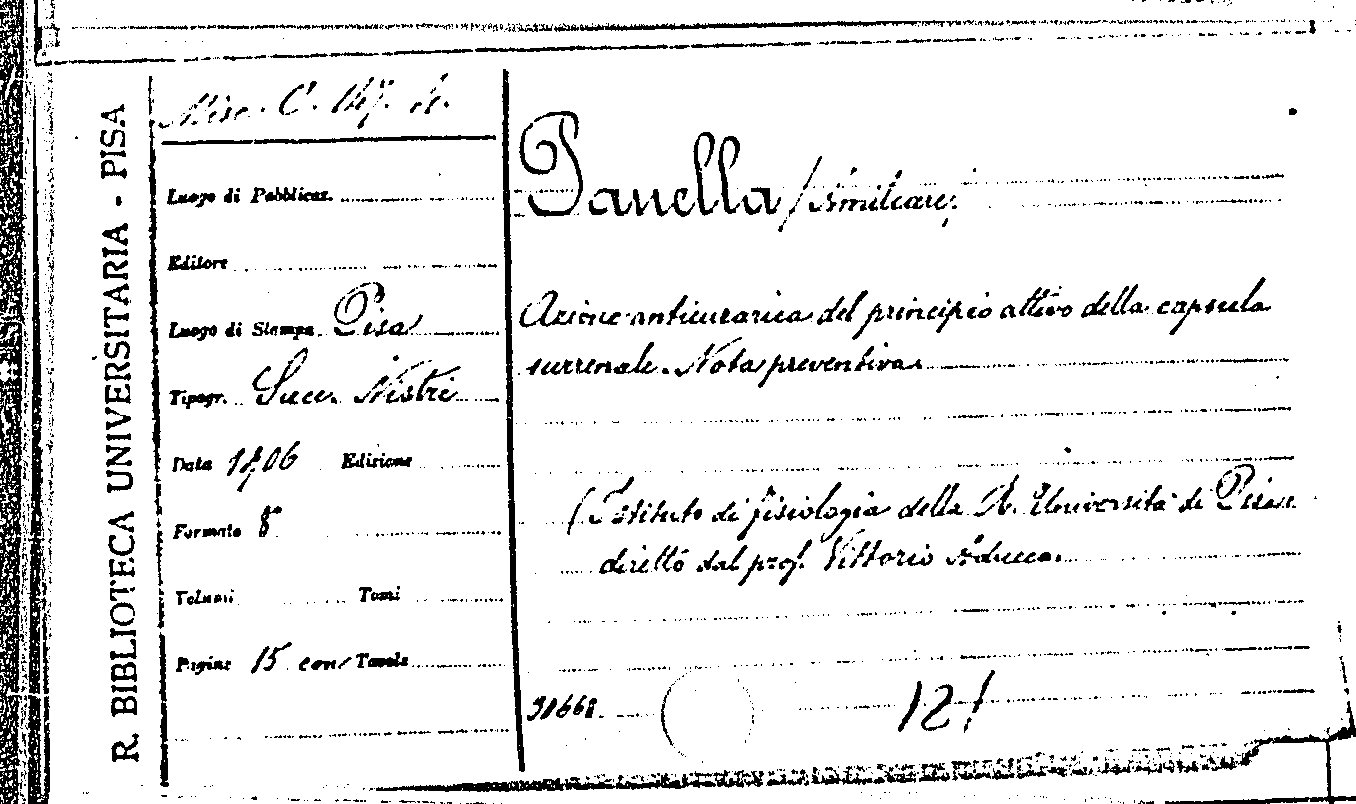 R. BIBLIOTECA UNIVERSITARIA - PISA
Misc. C. 147. 4.
Luogo di Pubblicaz.
Editore
Luogo di Stampa Pisa
Tipogr. Succ. Nistri
Data 1906 Edizione
Formato 8°
Volumi Tomi
Pagine 15 con Tavole
Panella / Amilcare.
Azione anticurarica del principio attivo della capsula
surrenale. Nota preventiva.
(Istituto di fisiologia della R. Università di Pisa
diretto dal prof. Vittorio Aducco.
121